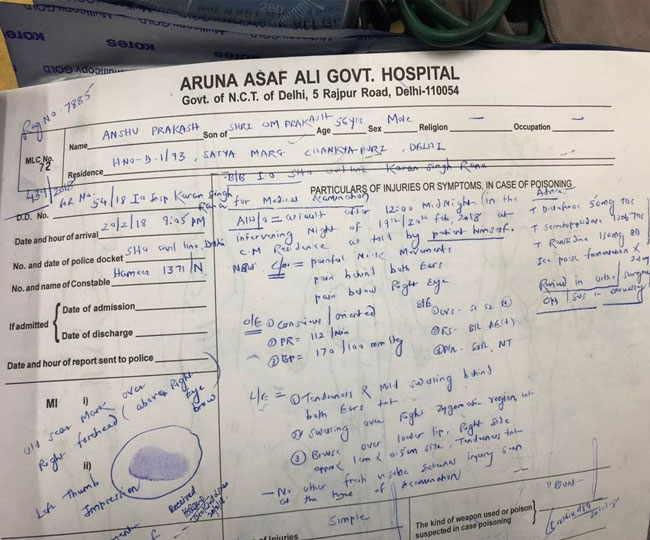 kores
Multicopy GOLD
kores
280
ARUNA ASAF ALI GOVT. HOSPITAL
Govt. of N.C.T. of Delhi, 5 Rajpur Road, Delhi-110054
Reg No- 7885
MLC No.
72
Name ANSHU PRAKASH Son of SHRI OM PRAKASH Age 56 yrs Sex Male Religion — Occupation —
Residence HNO-D-1/93, SATYA MARG CHANKYAPURI, DELHI
B/B I.O SHO civil line Karan Singh Rana
for Medical Examination
PARTICULARS OF INJURIES OR SYMPTOMS, IN CASE OF POISONING
D.D. No. 54/18 Io Insp Karan Singh Rana
Date and hour of arrival 20/2/18 9:05 PM
No. and date of police docket SHO civil line, Delhi
No. and name of Constable 1371/N
If admitted
Date of admission
Date of discharge
Date and hour of report sent to police
A/H/o = assault after 12:00 MidNight (in the
intervening Night of 19th/20th Feb 2018 at
C.M Residence as told by patient himself.
C/o = painful Neck Movements
pain behind both Ears
pain below Right Eye
Advice
T Ranitidine 150mg BD
O/E ① Conscious / oriented
② PR = 112 /min
③ BP = 170/100 mm Hg
S/E
① CVS- S1 S2 N
② RS- B/L AE(+)
③ P/A- Soft, NT
L/E = ① Tenderness & Mild swelling behind
both Ears
② Swelling over Right Zygomatic region
③ Bruise over lower lip, Right Side
approx 1cm x 0.5cm size. Tenderness
— No other fresh visible external injury seen
at the time of examination
MI i)
old scar Mark over
Right forehead (above Right
Eye
brow)
ii)
Left Thumb
Impression
Received
of Injuries Simple
The kind of weapon used or poison
suspected in case poisoning
Blunt